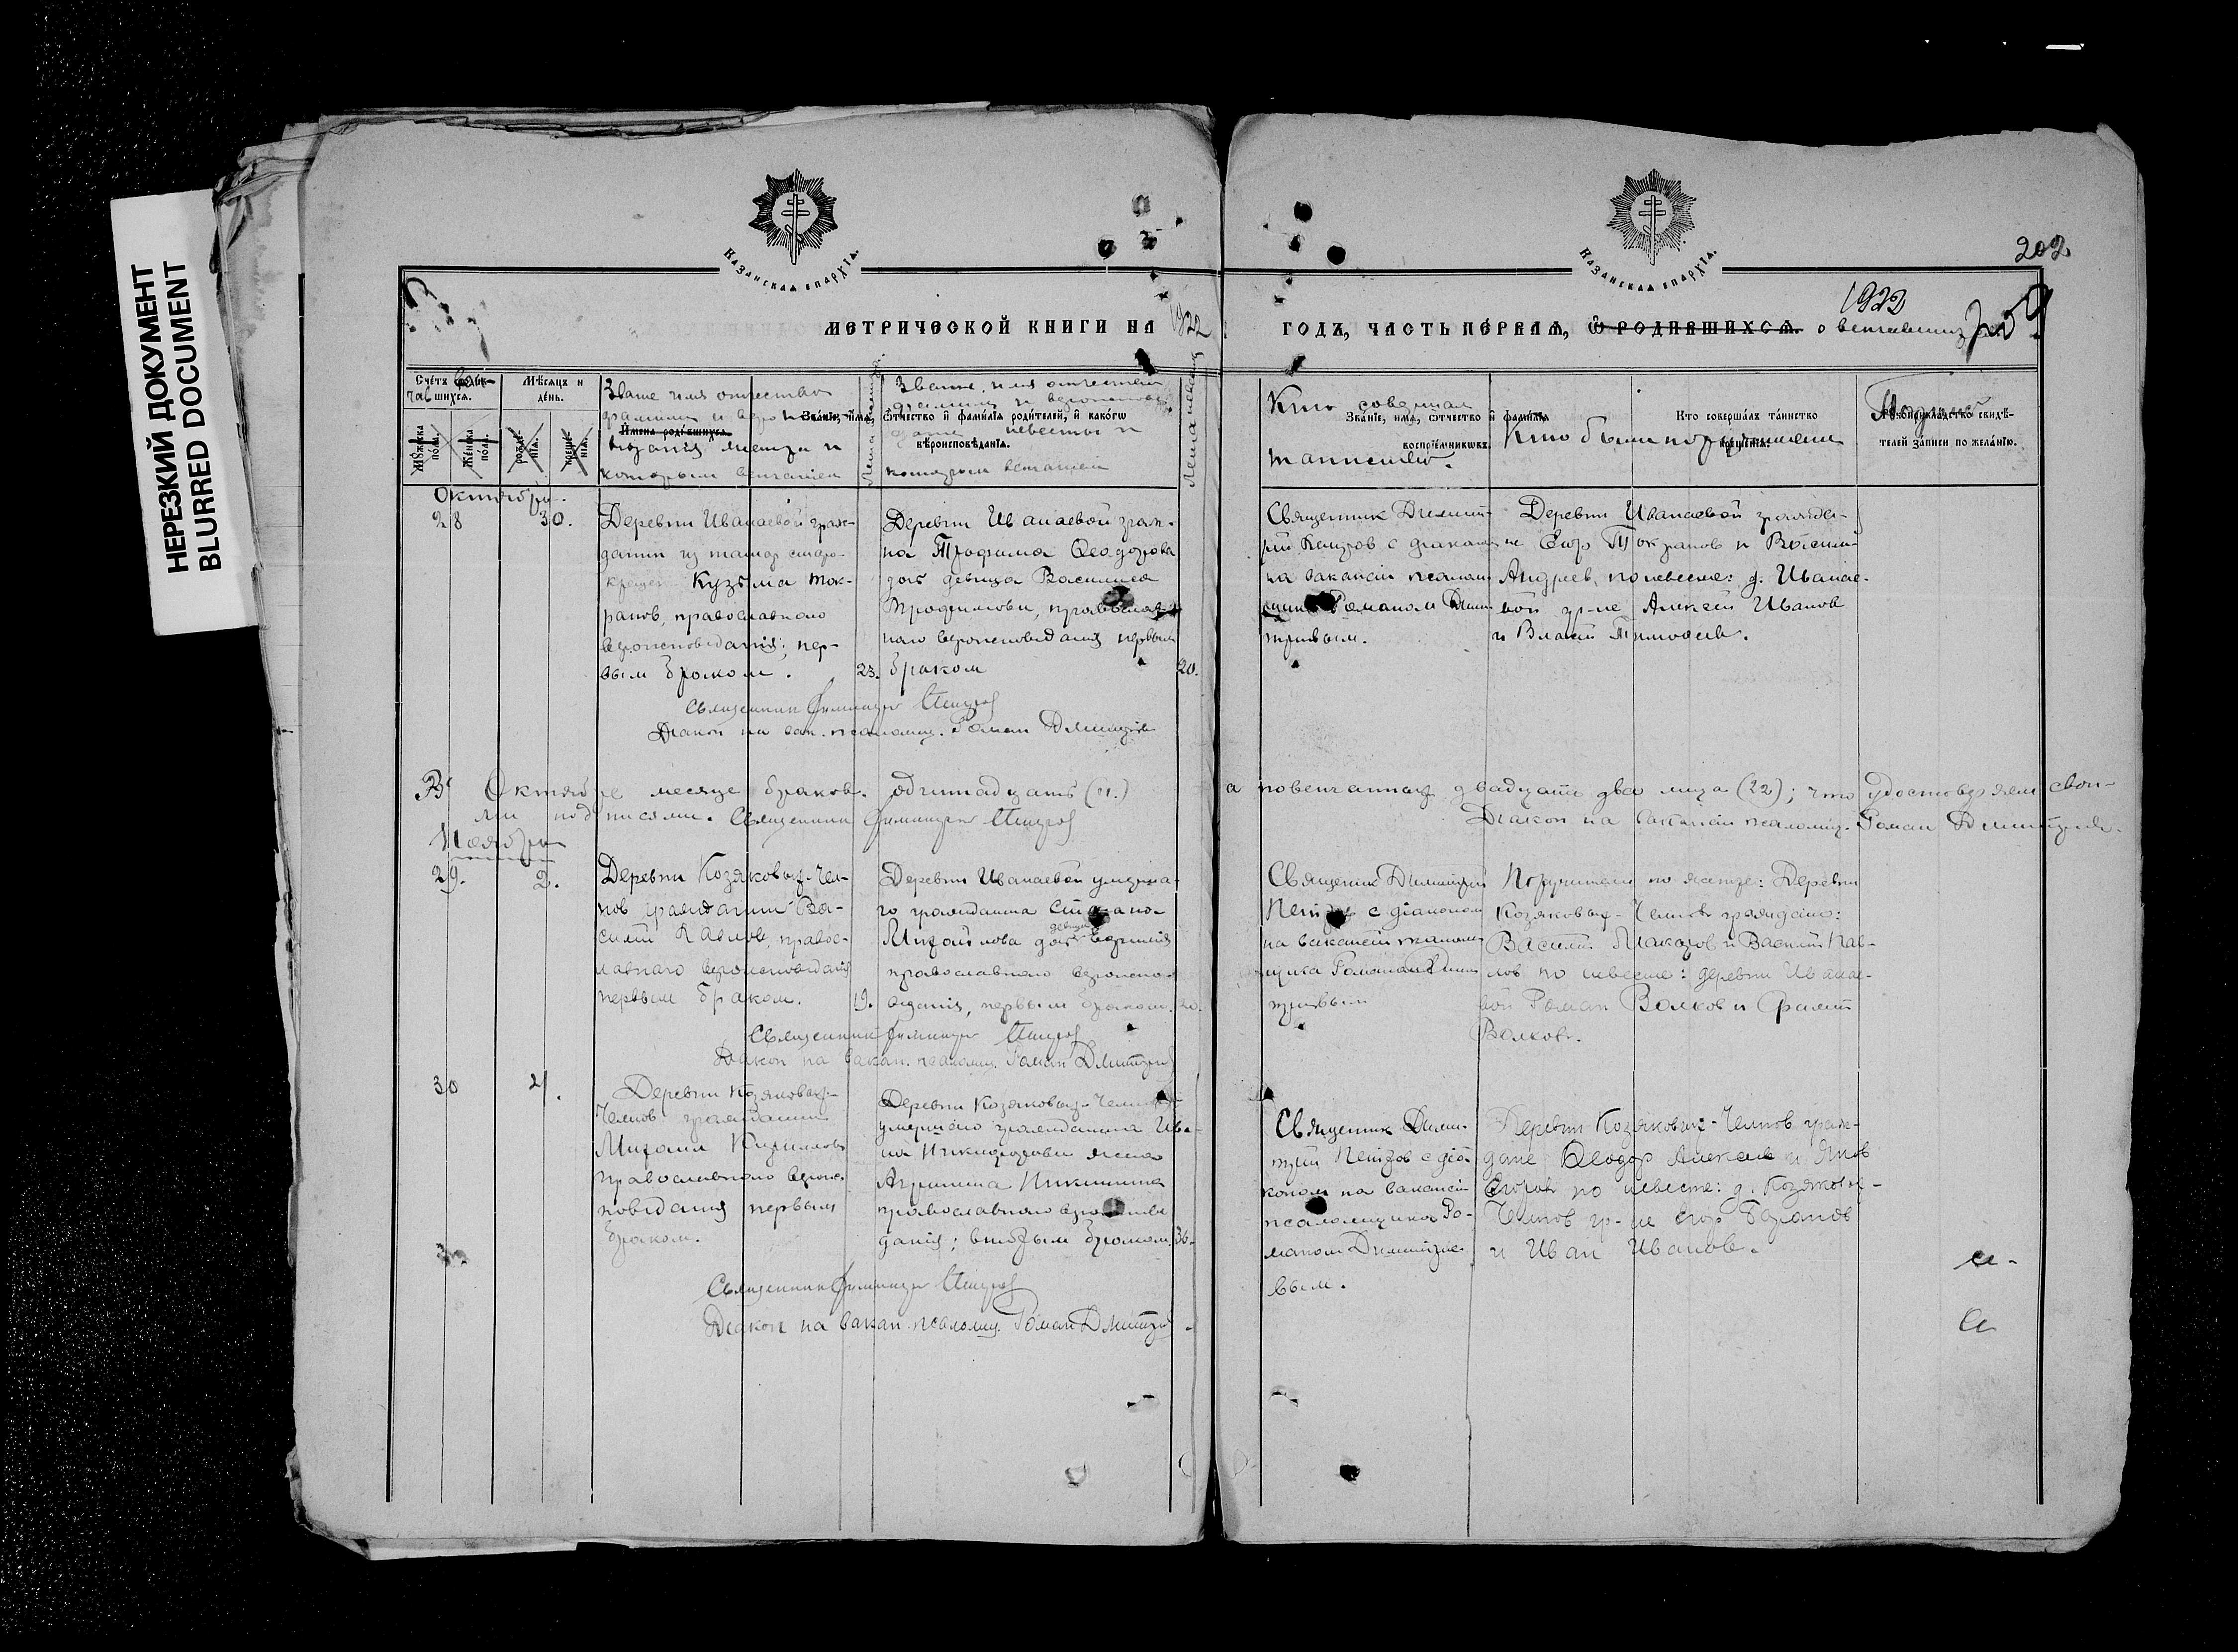 НЕРЕЗКИЙ ДОКУМЕНТ
BLURRED DOCUMENT
КАЗАНСКАЯ ЕПАРХІЯ.
КАЗАНСКАЯ ЕПАРХІЯ.
202
1922
МЕТРИЧЕСКОЙ КНИГИ НА 1922
ГОДЪ, ЧАСТЬ ПЕ́РВАЯ, Ѿ РОДИВШИХСЯ. о венчавших
Сче́тъ
шихся.
Мѣсяцъ и
де́нь.
Му́жеска
по́ла.
Же́нска
по́ла.
рожде́-
нїя.
креще́-
нїя.
Звание имя отчество
Имена роди́вшихся.
Зва́нїе, и́мя, ѻ҆́тчество и҆ фами́лїя роди́телей, и҆ како́гѡ
вѣроисповѣ́данїя.
невесты и
которым венчаны
Лета невесты
Кто совершал
таинство.
Зва́нїе, и́мя, ѻ҆́тчество и҆ фами́лїя
воспрїе́мниковъ.
Кто были поручители
Кто соверша́лъ та́инство
креще́нїя.
Рꙋкоприкла́дство свидѣ́-
телей за́писи по жела́нїю.
Октябрь.
28 30.
Деревни Иванаевой граж-
данин из татар старо-
крещен Кузьма Ток-
ранов, православного
вероисповедания; пер-
вым браком. 23.
Деревни Иванаевой граж-
на Трофима Ѳеодорова
дочь девица Василиса
Трофимова, православ-
ного вероисповедания первым
браком 20.
Священник Димит-
рий с диаконом
на вакансии псалом-
щика Романом Дими-
триевым.
Деревни Иванаевой гражда-
не Егор Токранов и
Андреев, по невесте: д. Иванае-
вой гр-не Алексей Иванов
и Власий Тимофеев.
Священник Димитрий
Диакон на вак. псаломщ. Роман Димитриев
В Октябре месяце браков одиннадцать (11.) а повенчанных двадцать два лица (22); что удостоверяем свои-
ми подписями. Священник Димитрий
Диакон на вакансии псаломщ. Роман Димитриев.
Ноябрь
29. 2.
Деревни Козяковых-Чел-
нов гражданин Ва-
силий Павлов, правос-
лавного вероисповедания
первым браком. 19.
Деревни Иванаевой умерша-
го гражданина Степана
Михайлова дочь девица
православного вероиспо-
ведания, первым браком. 20.
Священник Димитрий
с диаконом
на вакансии псалом-
щика Романом Дими-
триевым
Поручители по женихе: Деревни
Козяковых-Челнов граждане:
Василий Макаров и Василий Пав-
лов по невесте: деревни Иванае-
вой Роман Волков и
Волков.
Священник Димитрий
Диакон на вакан. псаломщ. Роман Димитриев
30 4.
Деревни Козяковых-
Челнов гражданин
Михаил Кириллов
православного вероис-
поведания первым
браком.
Деревни Козяковых-Челнов
умершого гражданина Ива-
на Никифорова жена
Агриппина Никитина
православного вероиспове
дания; вторым браком. 36.
Священник Дими-
трий с диа-
коном на вакансии
псаломщика Ро-
маном Димитрие-
вым.
Деревни Козяковых-Челнов граж-
дане Ѳеодор Алексеев и Яков
Егоров по невесте: д. Козяковых-
Челнов гр-не Егор
и Иван Иванов.
Священник Димитрий
Диакон на вакан. псаломщ. Роман Димитрий